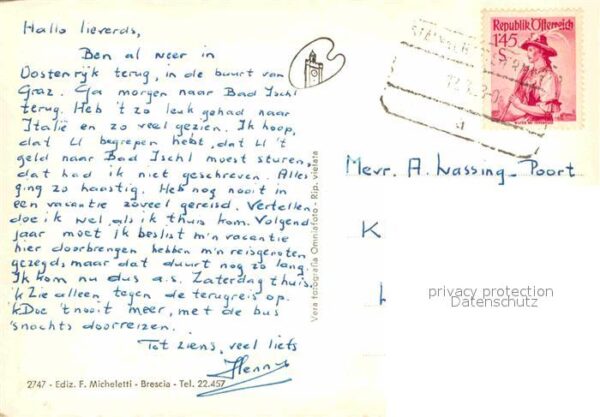 Hallo lieverds,
Ben al weer in
Oostenrijk terug, in de buurt van
Graz. Ga morgen naar Bad Ischl
terug. Heb 't zo leuk gehad naar
Italië en zo veel gezien. Ik hoop,
dat U begrepen hebt, dat U 't
geld naar Bad Ischl moest sturen,
dat had ik niet geschreven. Alles
ging zo haastig. Heb nog nooit in
een vacantie zoveel gereisd. Vertellen
doe ik wel als ik thuis kom. Volgend
jaar moet ik beslist m'n vacantie
hier doorbrengen hebben m'n reisgenoten
gezegd, maar dat duurt nog zo lang.
Ik kom nu dus a.s. Zaterdag thuis.
'k Zie alleen tegen de terugreis op.
'k Doe 't nooit meer, met de bus
's nachts doorreizen.
Tot ziens, veel liefs
Henny
2747 - Ediz. F. Micheletti - Brescia - Tel. 22.457
Vera fotografia Omniafoto - Rip. vietata
Republik Österreich
1'45
S
Mevr. A. Wassing-Poort
K
privacy protection
Datenschutz